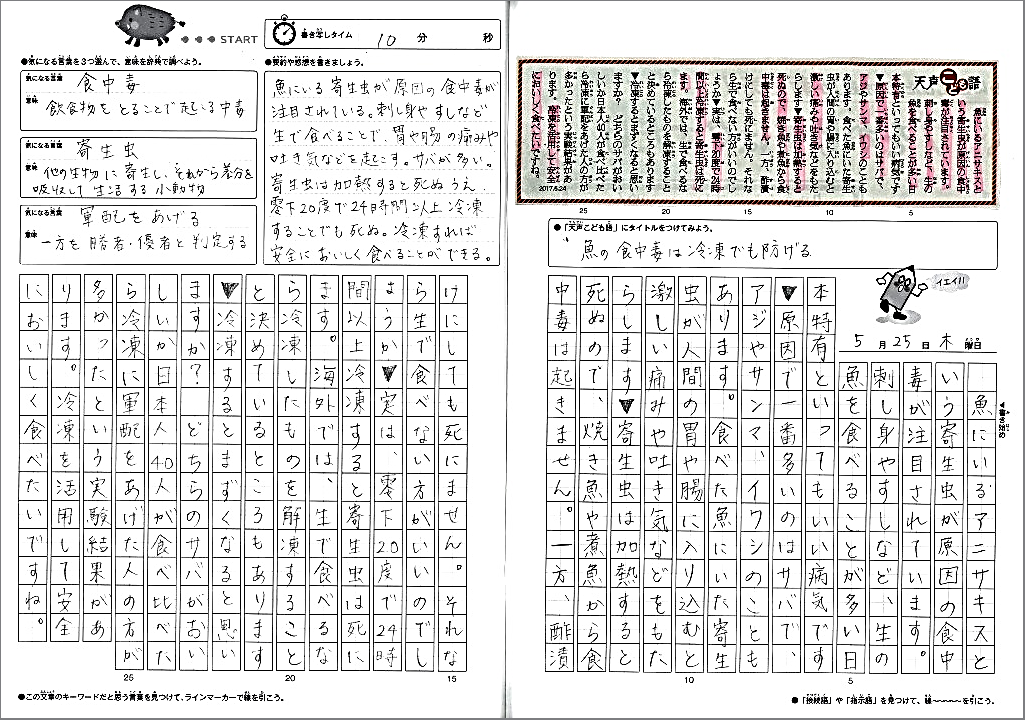 天声こども語
魚にいるアニサキスと
いう寄生虫が原因の食中
毒が注目されています。
刺し身やすしなど、生の
魚を食べることが多い日
本特有といってもいい病気です
▼原因で一番多いのはサバで、
アジやサンマ、イワシのことも
あります。食べた魚にいた寄生
虫が人間の胃や腸に入り込むと
激しい痛みや吐き気などをもた
らします▼寄生虫は加熱すると
死ぬので、焼き魚や煮魚から食
中毒は起きません。一方、酢漬
けにしても死にません。それな
ら生で食べない方がいいのでし
ょうか▼実は、零下20度で24時
間以上冷凍すると寄生虫は死に
ます。海外では、生で食べるな
ら冷凍したものを解凍すること
と決めているところもあります
▼冷凍するとまずくなると思い
ますか? どちらのサバがおい
しいか日本人40人が食べ比べた
ら冷凍に軍配をあげた人の方が
多かったという実験結果があ
ります。冷凍を活用して安全
においしく食べたいですね。
2017.5.24
25 20 15 10 5
●「天声こども語」にタイトルをつけてみよう。
魚の食中毒は冷凍でも防げる
イエイ!!
5月25日木曜日
▼書き始め
魚にいるアニサキスと
いう寄生虫が原因の食中
毒が注目されています。
刺し身やすしなど、生の
魚を食べることが多い日
本特有といってもいい病気です
▼原因で一番多いのはサバで、
アジやサンマ、イワシのことも
あります。食べた魚にいた寄生
虫が人間の胃や腸に入り込むと
激しい痛みや吐き気などをもた
らします▼寄生虫は加熱すると
死ぬので、焼き魚や煮魚から食
中毒は起きません。一方、酢漬
10 5
●「接続語」や「指示語」を見つけて、線〜〜〜を引こう。
START
書き写しタイム 10分 秒
●気になる言葉を3つ選んで、意味を辞典で調べよう。
気になる言葉 食中毒
意味 飲食物をとることで起こる中毒
気になる言葉 寄生虫
意味 他の生物に寄生し、それから養分を
吸収して生活する小動物
気になる言葉 軍配をあげる
意味 一方を勝者・優者と判定する
●要約や感想を書きましょう。
魚にいる寄生虫が原因の食中毒が
注目されている。刺し身やすしなど
生で食べることで、胃や腸の痛みや
吐き気などを起こす。サバが多い。
寄生虫は加熱すると死ぬうえ
零下20度で24時間以上冷凍
することでも死ぬ。冷凍すれば
安全においしく食べることができる。
けにしても死にません。それな
ら生で食べない方がいいのでし
ょうか▼実は、零下20度で24時
間以上冷凍する、と寄生虫は死に
ます。海外では、生で食べるな
ら冷凍したものを解凍すること
と決めているところもあります
▼冷凍するとまずくなると思い
ますか?どちらのサバがおい
しいか日本人40人が食べ比べた
ら冷凍に軍配をあげた人の方が
多かったという実験結果があ
ります。冷凍を活用して安全
においしく食べたいですね。
25 20 15
●この文章のキーワードだと思う言葉を見つけて、ラインマーカーで線を引こう。